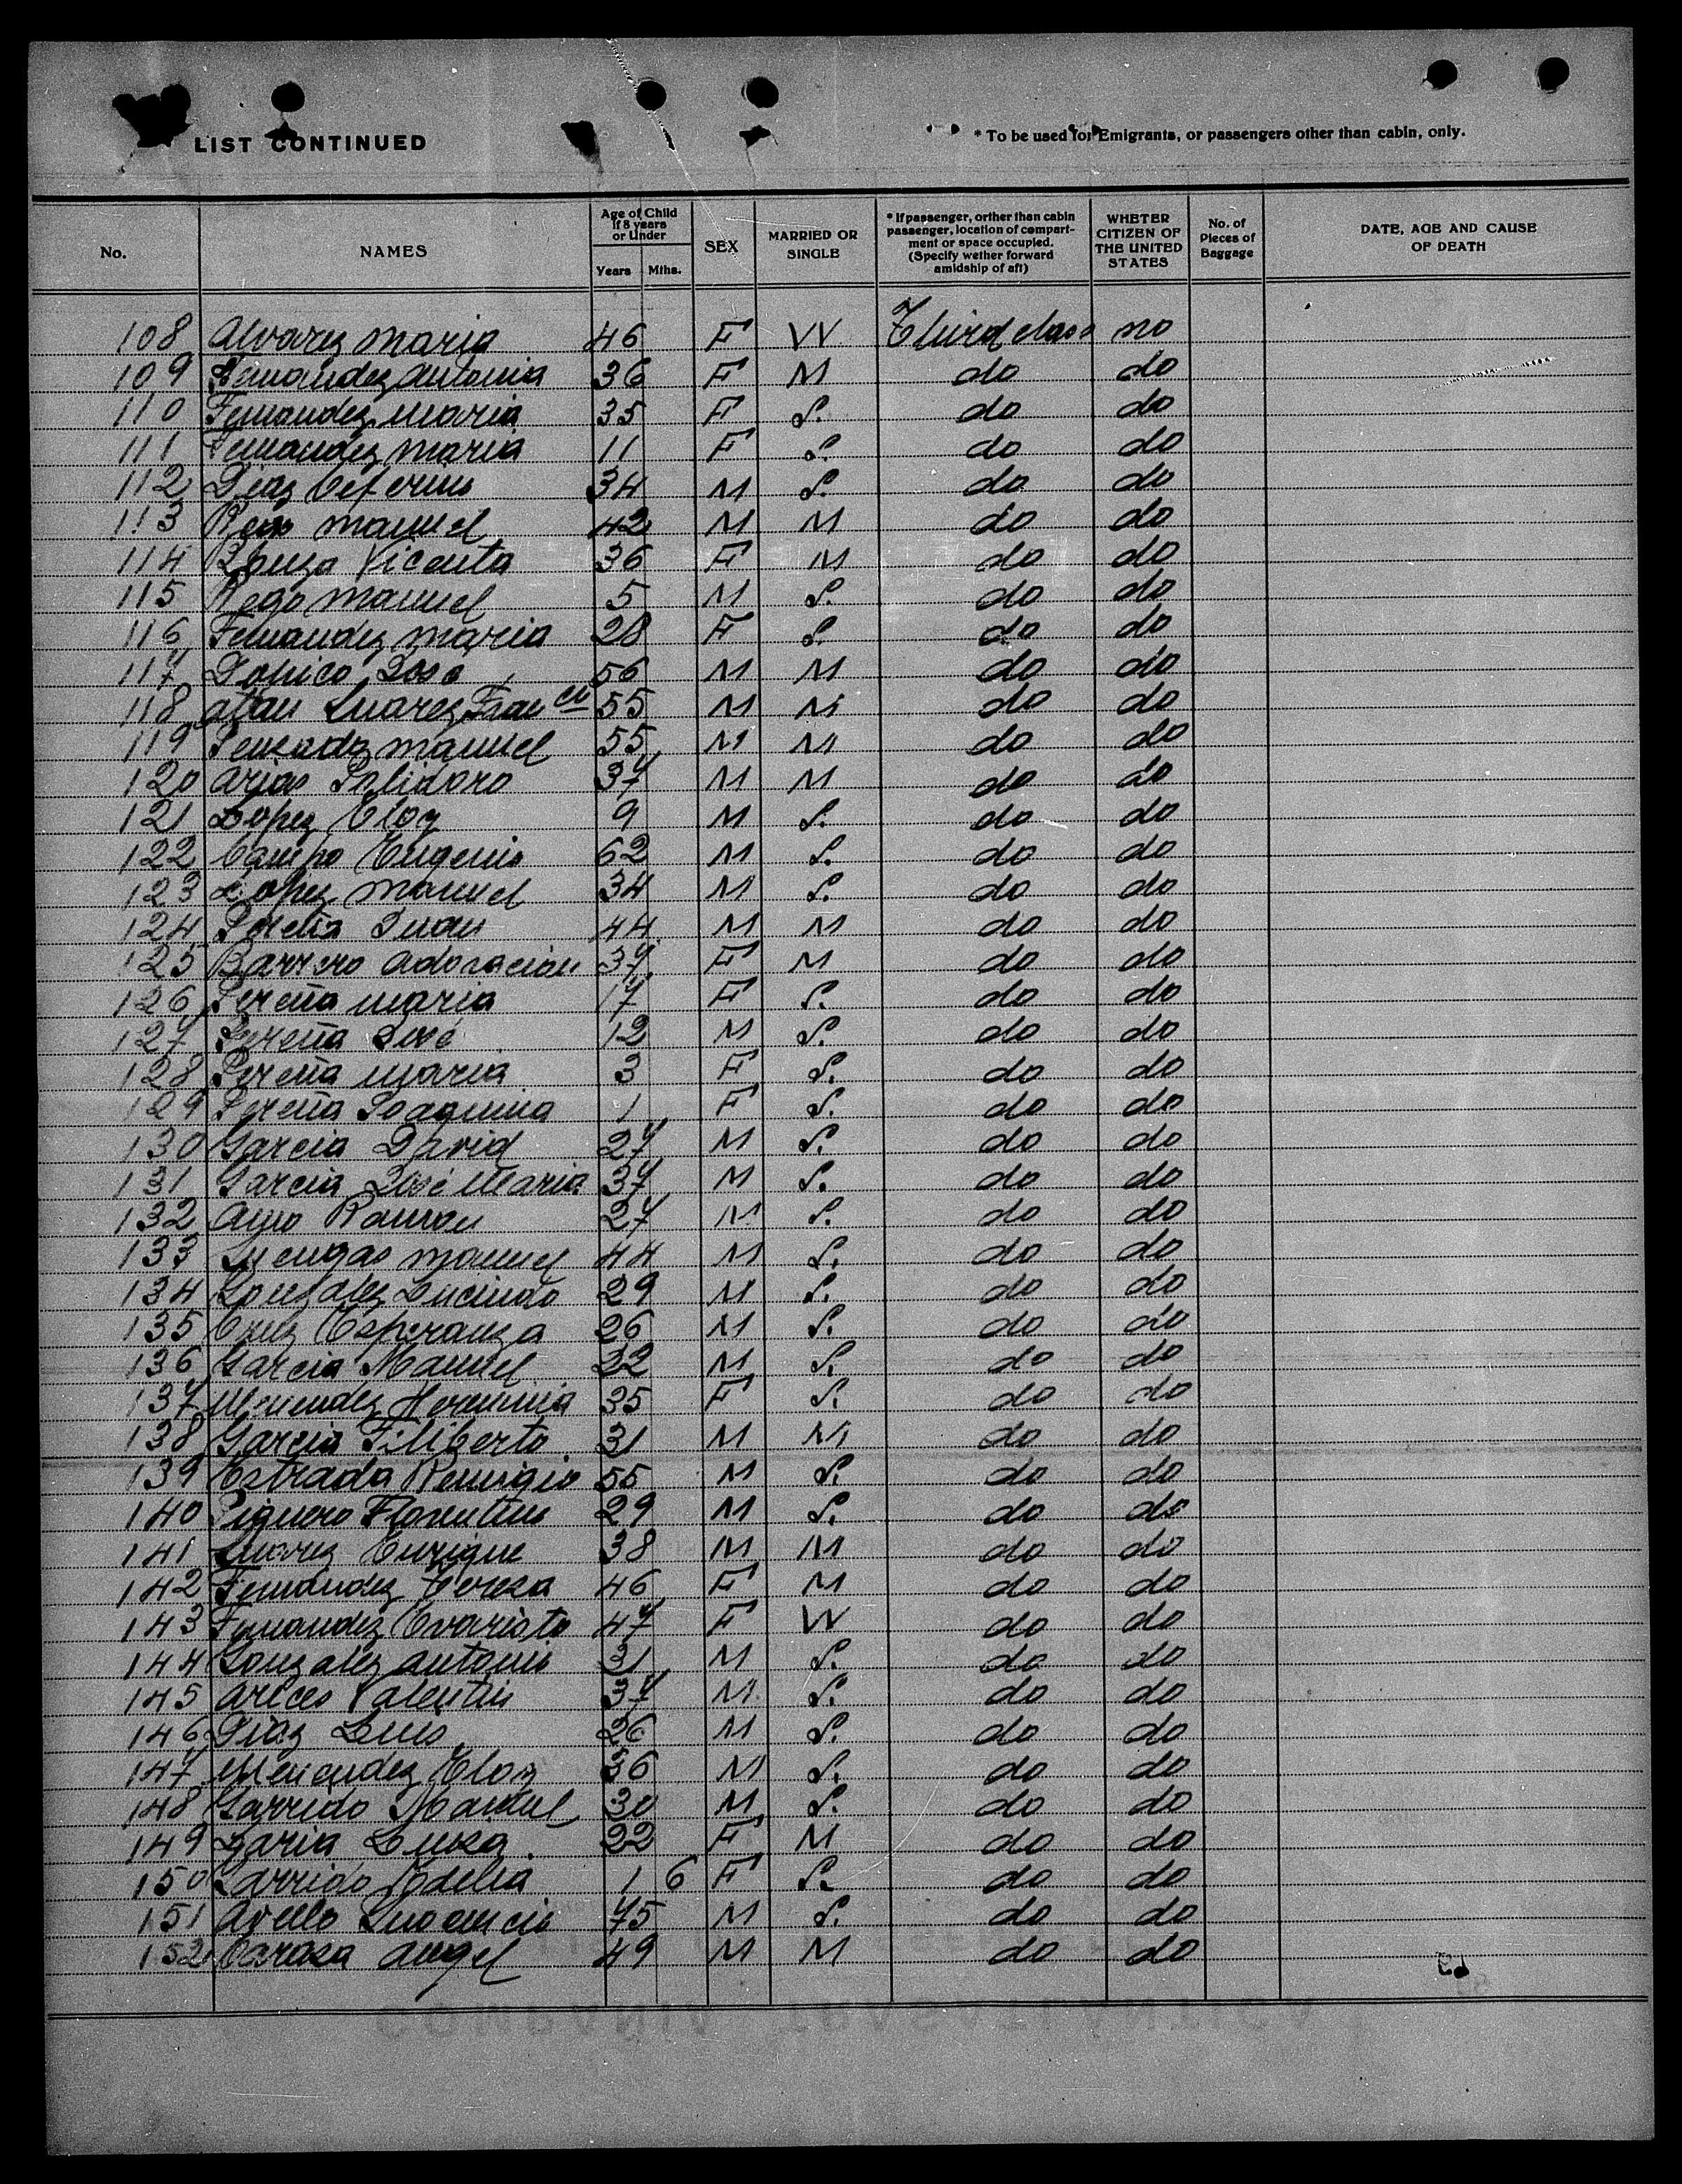 LIST CONTINUED
* To be used for Emigrants, or passengers other than cabin, only.
No. NAMES Age of Child If 8 years or Under Years Mths. SEX MARRIED OR SINGLE * If passenger, orther than cabin passenger, location of compartment or space occupied. (Specify wether forward amidship of aft) WHETER CITIZEN OF THE UNITED STATES No. of Pieces of Baggage DATE, AGE AND CAUSE OF DEATH
108 Alvarez Maria 46 F W Third class no
109 Fernandez Antonia 36 F M do do
110 Fernandez Maria 35 F S. do do
111 Fernandez Maria 11 F S. do do
112 Diaz Ceferino 34 M S. do do
113 Manuel 42 M M do do
114 Bouza Vicenta 36 F M do do
115 Rego Manuel 5 M S. do do
116 Fernandez Maria 28 F S. do do
117 José 56 M M do do
118 Suarez Fran co 55 M M do do
119 Manuel 55 M M do do
120 Arias Polidoro 37 M M do do
121 Lopez Eloy 9 M S. do do
122 Eugenio 62 M S. do do
123 Lopez Manuel 34 M S. do do
124 Pereña Juan 44 M M do do
125 Barrero Adoracion 37 F M do do
126 Pereña Maria 17 F S. do do
127 Pereña José 12 M S. do do
128 Pereña Maria 3 F S. do do
129 Pereña Joaquina 1 F S. do do
130 Garcia David 27 M S. do do
131 Garcia José Maria 37 M S. do do
132 Ramon 27 M S. do do
133 Luengas Manuel 44 M S. do do
134 Gonzalez Lucindo 29 M S. do do
135 Cruz Esperanza 26 M S. do do
136 Garcia Manuel 22 M S. do do
137 Menendez Herminia 35 F S. do do
138 Garcia Filiberto 31 M M do do
139 Estrada Remigio 55 M S. do do
140 Piquero Florentino 29 M S. do do
141 Suarez Enrique 38 M M do do
142 Fernandez Teresa 46 F M do do
143 Fernandez Evaristo 47 F W do do
144 Gonzalez Antonio 31 M S. do do
145 Arces Valentin 37 M S. do do
146 Diaz Luis 26 M S. do do
147 Menendez Eloy 36 M S. do do
148 Garrido Manuel 30 M S. do do
149 Luisa 22 F M do do
150 Garrido Adelia 1 6 F S. do do
151 Avello Inocencio 75 M S. do do
152 Angel 49 M M do do